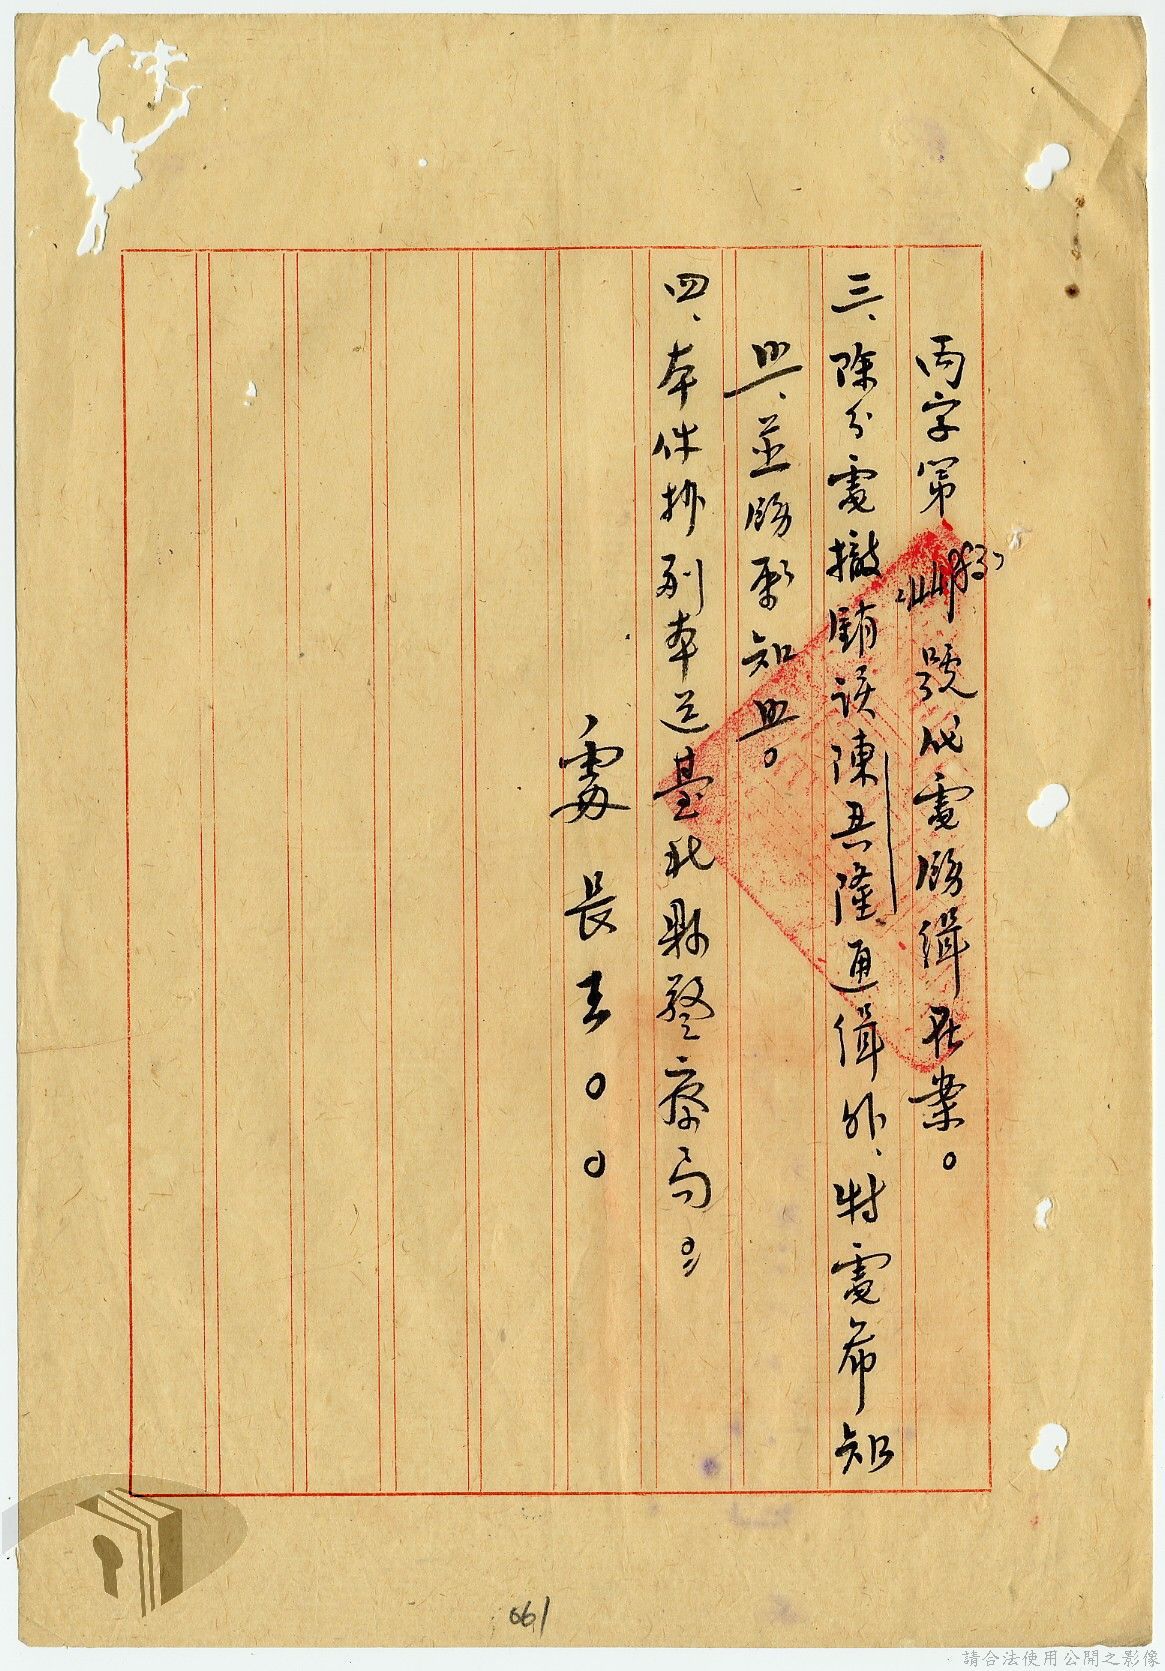 丙字第 號代電飭緝在案。
三、除分電撤銷該陳其隆通緝外、特電希知
照、並飭所知照。
四、本件抄副本送臺北縣警察局。
處長王〇〇
061
請合法使用公開之影像